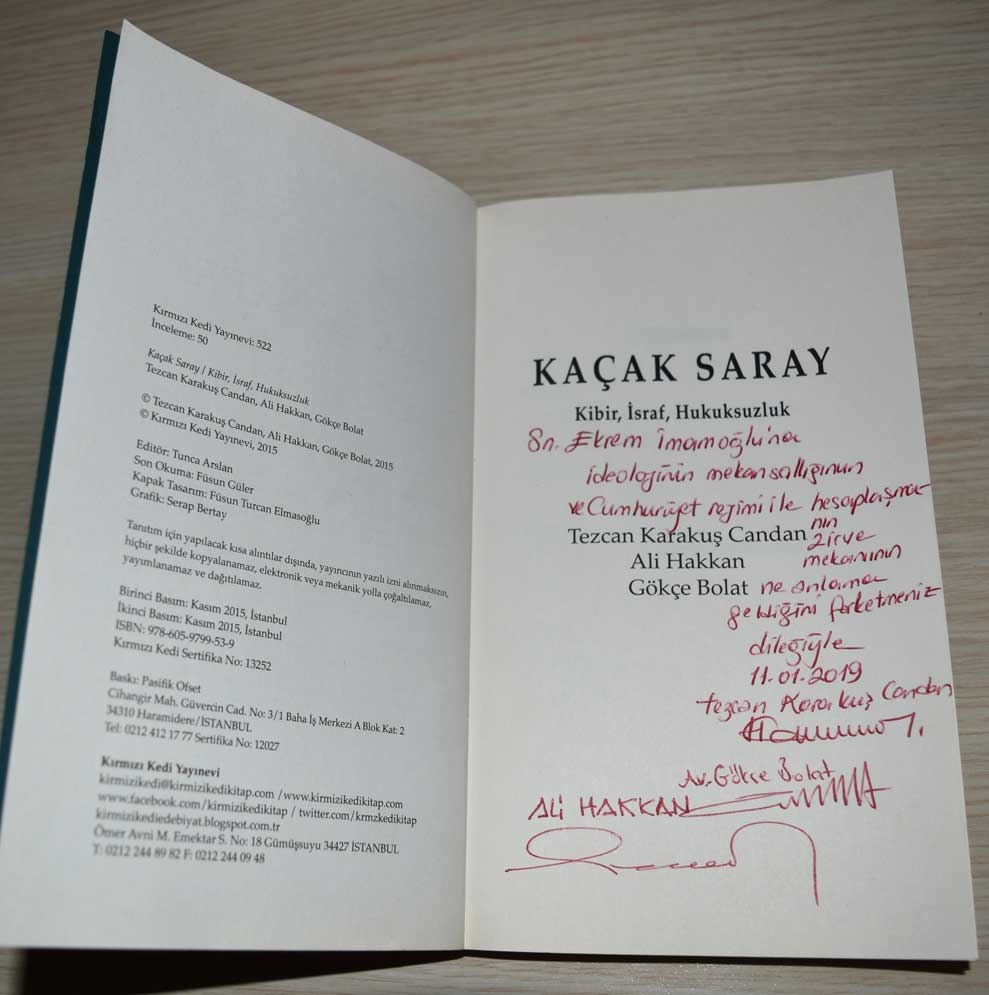 Kırmızı Kedi Yayınevi: 522
İnceleme: 50
Kaçak Saray / Kibir, İsraf, Hukuksuzluk
Tezcan Karakuş Candan, Ali Hakkan, Gökçe Bolat
© Tezcan Karakuş Candan, Ali Hakkan, Gökçe Bolat, 2015
© Kırmızı Kedi Yayınevi, 2015
Editör: Tunca Arslan
Son Okuma: Füsun Güler
Kapak Tasarım: Füsun Turcan Elmasoğlu
Grafik: Serap Bertay
Tanıtım için yapılacak kısa alıntılar dışında, yayıncının yazılı izni alınmaksızın,
hiçbir şekilde kopyalanamaz, elektronik veya mekanik yolla çoğaltılamaz,
yayımlanamaz ve dağıtılamaz.
Birinci Basım: Kasım 2015, İstanbul
İkinci Basım: Kasım 2015, İstanbul
ISBN: 978-605-9799-53-9
Kırmızı Kedi Sertifika No: 13252
Baskı: Pasifik Ofset
Cihangir Mah. Güvercin Cad. No: 3/1 Baha İş Merkezi A Blok Kat: 2
34310 Haramidere/İSTANBUL
Tel: 0212 412 17 77 Sertifika No: 12027
Kırmızı Kedi Yayınevi
kirmizikedi@kirmizikedikitap.com / www.kirmizikedikitap.com
www.facebook.com/kirmizikedikitap / twitter.com/krmzkedikitap
kirmizikediedebiyat.blogspot.com.tr
Ömer Avni M. Emektar S. No: 18 Gümüşsuyu 34427 İSTANBUL
T: 0212 244 89 82 F: 0212 244 09 48
KAÇAK SARAY
Kibir, İsraf, Hukuksuzluk
Sn. Ekrem İmamoğlu'na
ideolojinin mekansallığının
ve Cumhuriyet rejimi ile hesaplaşma
nın
Tezcan Karakuş Candan
zirve
Ali Hakkan
mekanının
Gökçe Bolat
ne anlama
geldiğini farketmeniz
dileğiyle
11.01.2019
tezcan Karakuş Candan
Av. Gökçe Bolat
ALİ HAKKAN